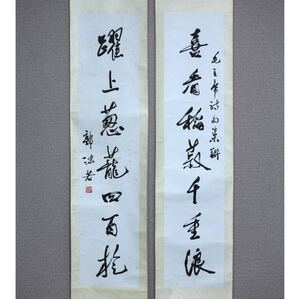 喜看稻菽千重浪
毛主席詩句集聯
躍上葱蘢四百旋
郭沫若